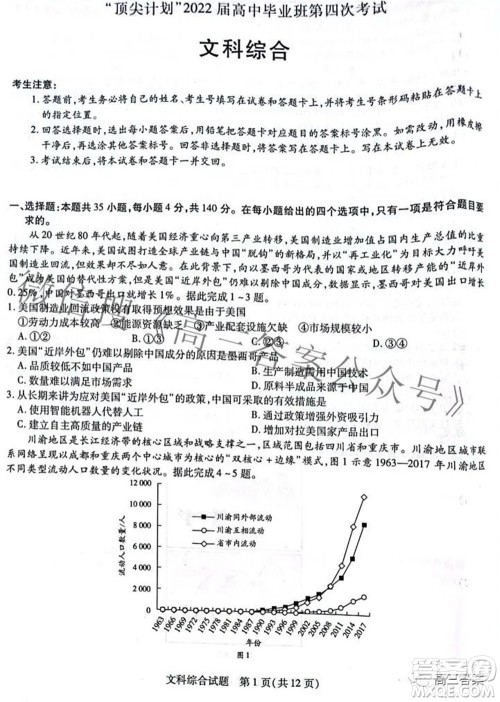 “顶尖计划”2022届高中毕业班第四次考试
文科综合
考生注意:
1. 答题前,考生务必将自己的姓名、考生号填写在试卷和答题卡上,并将考生号条形码粘贴在答题卡上的指定位置。
2. 回答选择题时,选出每小题答案后,用铅笔把答题卡对应题目的答案标号涂黑。如需改动,用橡皮擦干净后,再选涂其他答案标号。回答非选择题时,将答案写在答题卡上。写在本试卷上无效。
3. 考试结束后,将本试卷和答题卡一并交回。
一、选择题:本题共35小题,每小题4分,共140分。在每小题给出的四个选项中,只有一项是符合题目要求的。
从20世纪80年代起,随着美国经济重心向第三产业转移,美国制造业增加值占国内生产总值的占比持续下降。近年来,美国试图打造全球产业链与中国“脱钩”的新模式,并以“再工业化”为目标大力呼吁美国制造业回流,但效果并不显著,随后美国又以向墨西哥为代表的国家或地区转移产能的“近岸外包”为策略。但美国“近岸外包”仍难以剔除中国成分,数据显示,墨西哥对美国出口每增长0.25%,中国对墨西哥出口就增长1%。据此完成1~3题。
1. 美国制造业回流政策没有取得预期效果是由于美国
①劳动力成本高 ②能源资源缺乏 ③产业配套设施欠缺 ④市场规模较小
A. ①② B. ①③ C. ②③ D. ③④
2. 美国“近岸外包”仍难以剔除中国成分的原因是墨西哥产品
A. 品质品优不如中国产品 B. 生产制造需用中国技术
C. 国际市场不如中国产品 D. 原料半成品来源于中国
3. 从长期来讲为应对美国“近岸外包”的政策,我国可以
A. 使用智能机器人代替人工 B. 通过政策增强外资吸引力
C. 建立自主高质量的产业链 D. 增加对拉美国家产品出口
川渝地区是长江经济带的核心区域和战略支撑之一,区域范围包括四川省和重庆市。川渝地区的城市联系网络呈现以成都和重庆两个中心城市为核心的“双核心+边缘”模式。图1示意1963—2017年川渝地区不同类型流动人口数量的变化状况。据此完成4~5题。
流动人口数量/人
14 000
12 000
10 000
8 000
6 000
4 000
2 000
0
川渝同外部流动
川渝内部流动
省市内流动
1963 1966 1969 1972 1975 1978 1981 1984 1987 1990 1993 1996 1999 2002 2005 2008 2011 2014 2017
年份
图1
文科综合试题 第1页(共12页)
微信搜《高三答案公众号》
高三答案